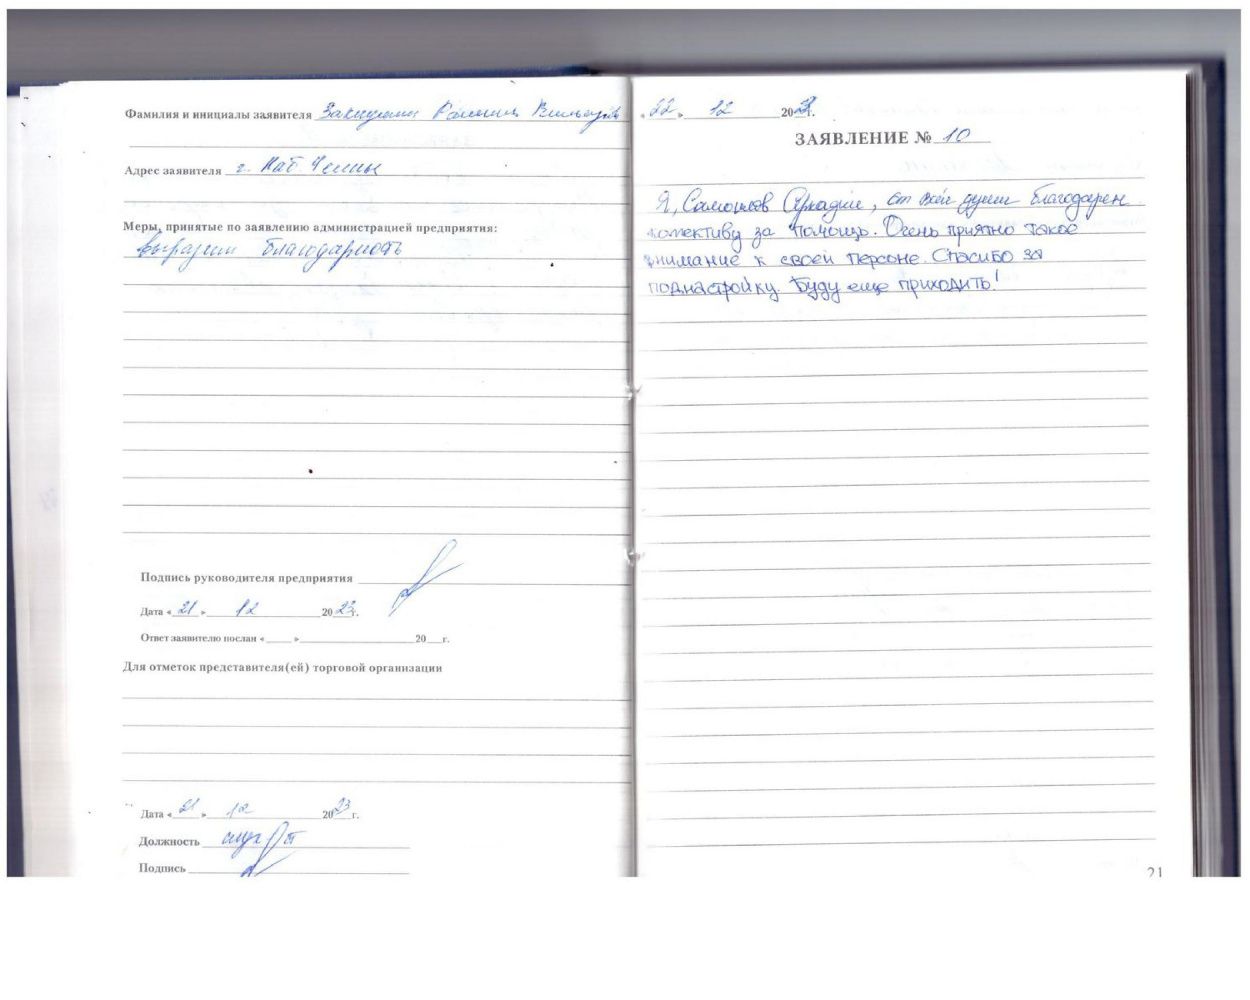 Фамилия и инициалы заявителя
Адрес заявителя г. Наб Челны
Меры, принятые по заявлению администрацией предприятия:
выразили благодарность
Подпись руководителя предприятия
Дата « 21 » 12 2023г.
Ответ заявителю послан « » 20 г.
Для отметок представителя(ей) торговой организации
Дата « 21 » 12 2023 г.
Должность
Подпись
« 22 » 12 20 г.
ЗАЯВЛЕНИЕ № 10
Я, Самойлов Аркадий, от всей души благодарен
колективу за помощь. Очень приятно такое
внимание к своей персоне. Спасибо за
поднастройку. Буду еще приходить!
21